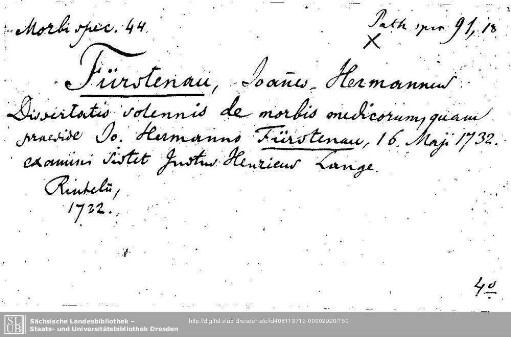 Morbi spec. 44.
Path spec 91, 18
X
Fürstenau, Joañes Hermannus
Dissertatio solennis de morbis medicorum, quam
praeside Jo. Hermanno Fürstenau, 16. Maji 1732.
examini sistet Justus Henricus Lange.
Rintelii,
1732.
4o
SLUB
Sächsische Landesbibliothek –
Staats- und Universitätsbibliothek Dresden